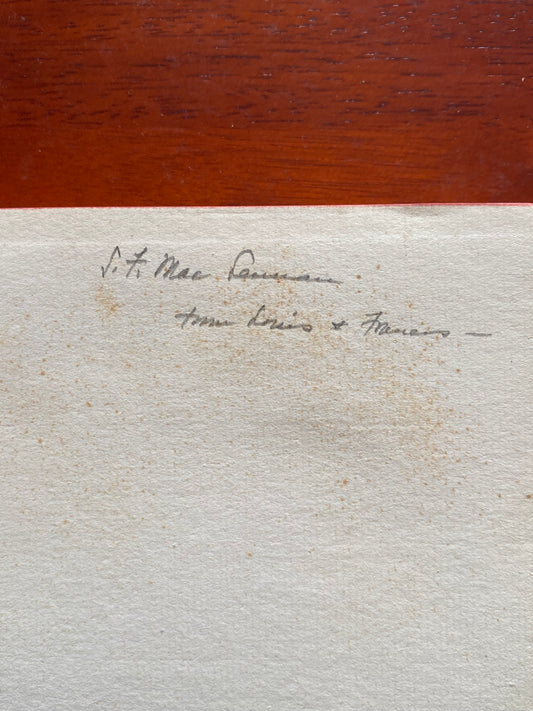 S. F. Mac Lennan
from Louis & Frances —